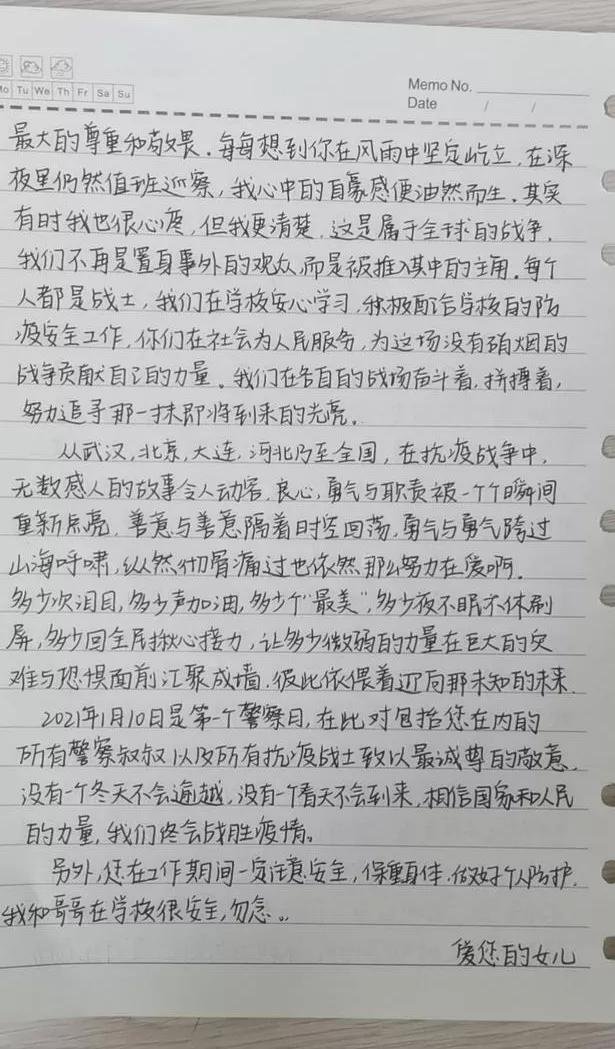 Mo Tu We Th Fr Sa Su
Memo No.
Date / /
最大的尊重和敬畏.每每想到你在风雨中坚定屹立,在深
夜里仍然值班巡察,我心中的自豪感便油然而生.其实
有时我也很心疼,但我更清楚,这是属于全球的战争,
我们不再是置身事外的观众,而是被推入其中的主角.每个
人都是战士,我们在学校安心学习,积极配合学校的防
疫安全工作,你们在社会为人民服务,为这场没有硝烟的
战争贡献自己的力量。我们在各自的战场奋斗着,拼搏着,
努力追寻那一抹即将到来的光亮。
从武汉,北京,大连,河北乃至全国,在抗疫战争中,
无数感人的故事令人动容,良心,勇气与职责被一个个瞬间
重新点亮,善意与善意隔着时空回荡,勇气与勇气跨过
山海呼啸,纵然彻骨痛过也依然那么努力在爱啊.
多少次泪目,多少声加油,多少个"最美",多少夜不眠不休刷
屏,多少回全民揪心接力,让多少微弱的力量在巨大的灾
难与恐惧面前汇聚成墙,彼此依偎着迎向那未知的未来.
2021年1月10日是第一个警察日,在此对包括您在内的
所有警察叔叔以及所有抗疫战士致以最诚尊的敬意,
没有一个冬天不会逾越,没有一个春天不会到来,相信国家和人民
的力量,我们终会战胜疫情。
另外,您在工作期间一定注意安全,保重身体,做好个人防护.
我和哥哥在学校很安全,勿念。
爱您的女儿